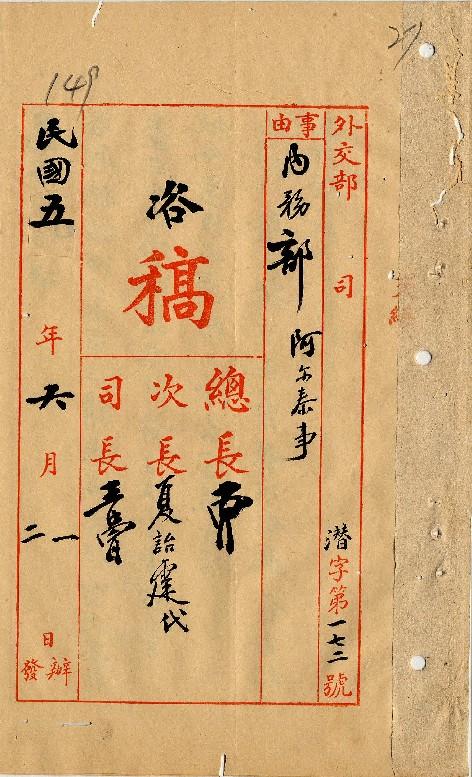 27
149
外交部 司 潛字第一七二號
事由
內務部 阿尔泰事
咨稿
總長
次長 夏詒霆代
司長
民國五年六月一二日辦發